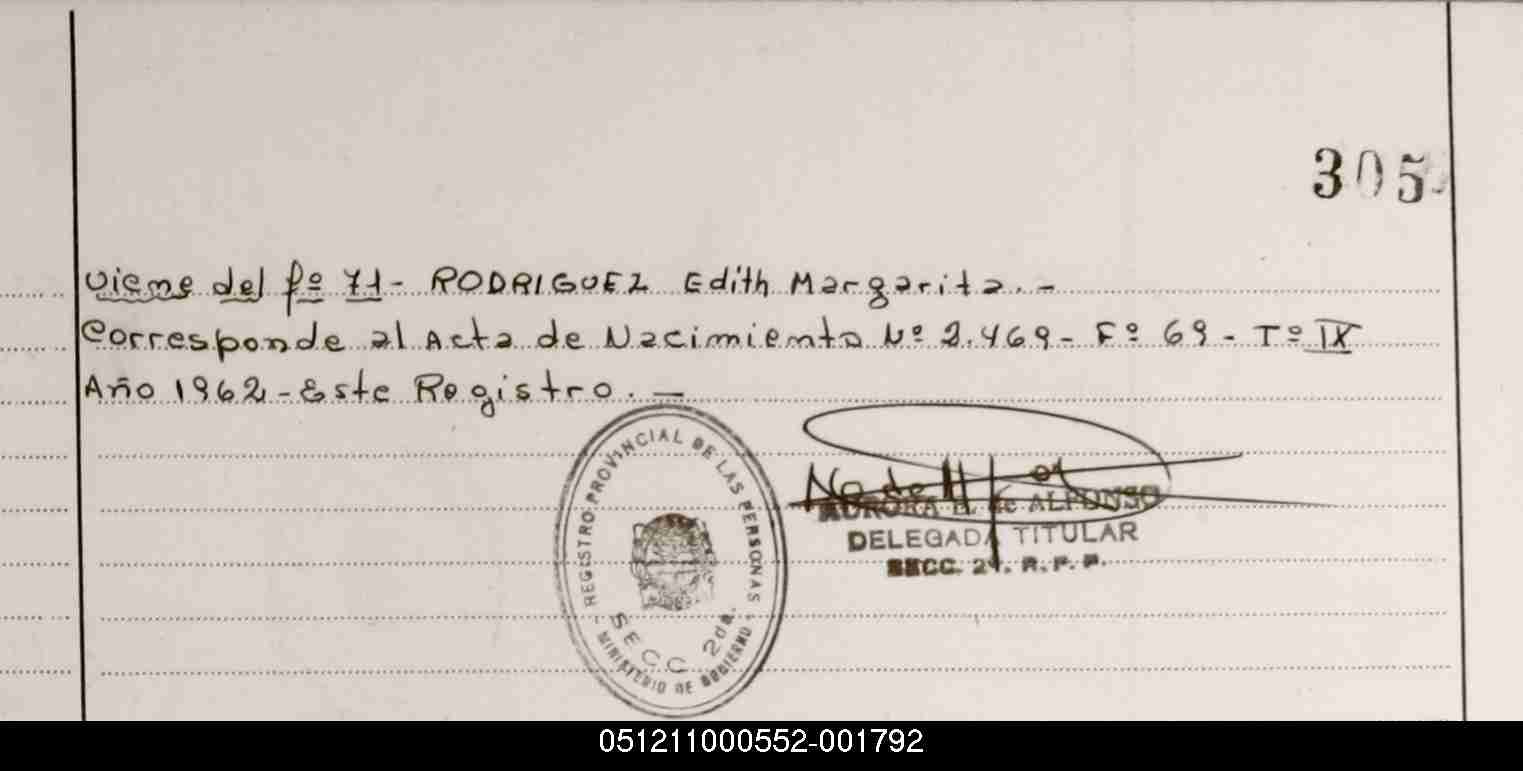 305
Viene del fº 71- RODRIGUEZ Edith Margarita.-
Corresponde al Acta de Nacimiento Nº 2.469- Fº 69- Tº IX
Año 1962-Este Registro.—
REGISTRO PROVINCIAL DE LAS PERSONAS
SECC 2da.
MINISTERIO DE GOBIERNO
AURORA de ALFONSO
DELEGADA TITULAR
SECC. 2ª. R. P. P.
051211000552-001792